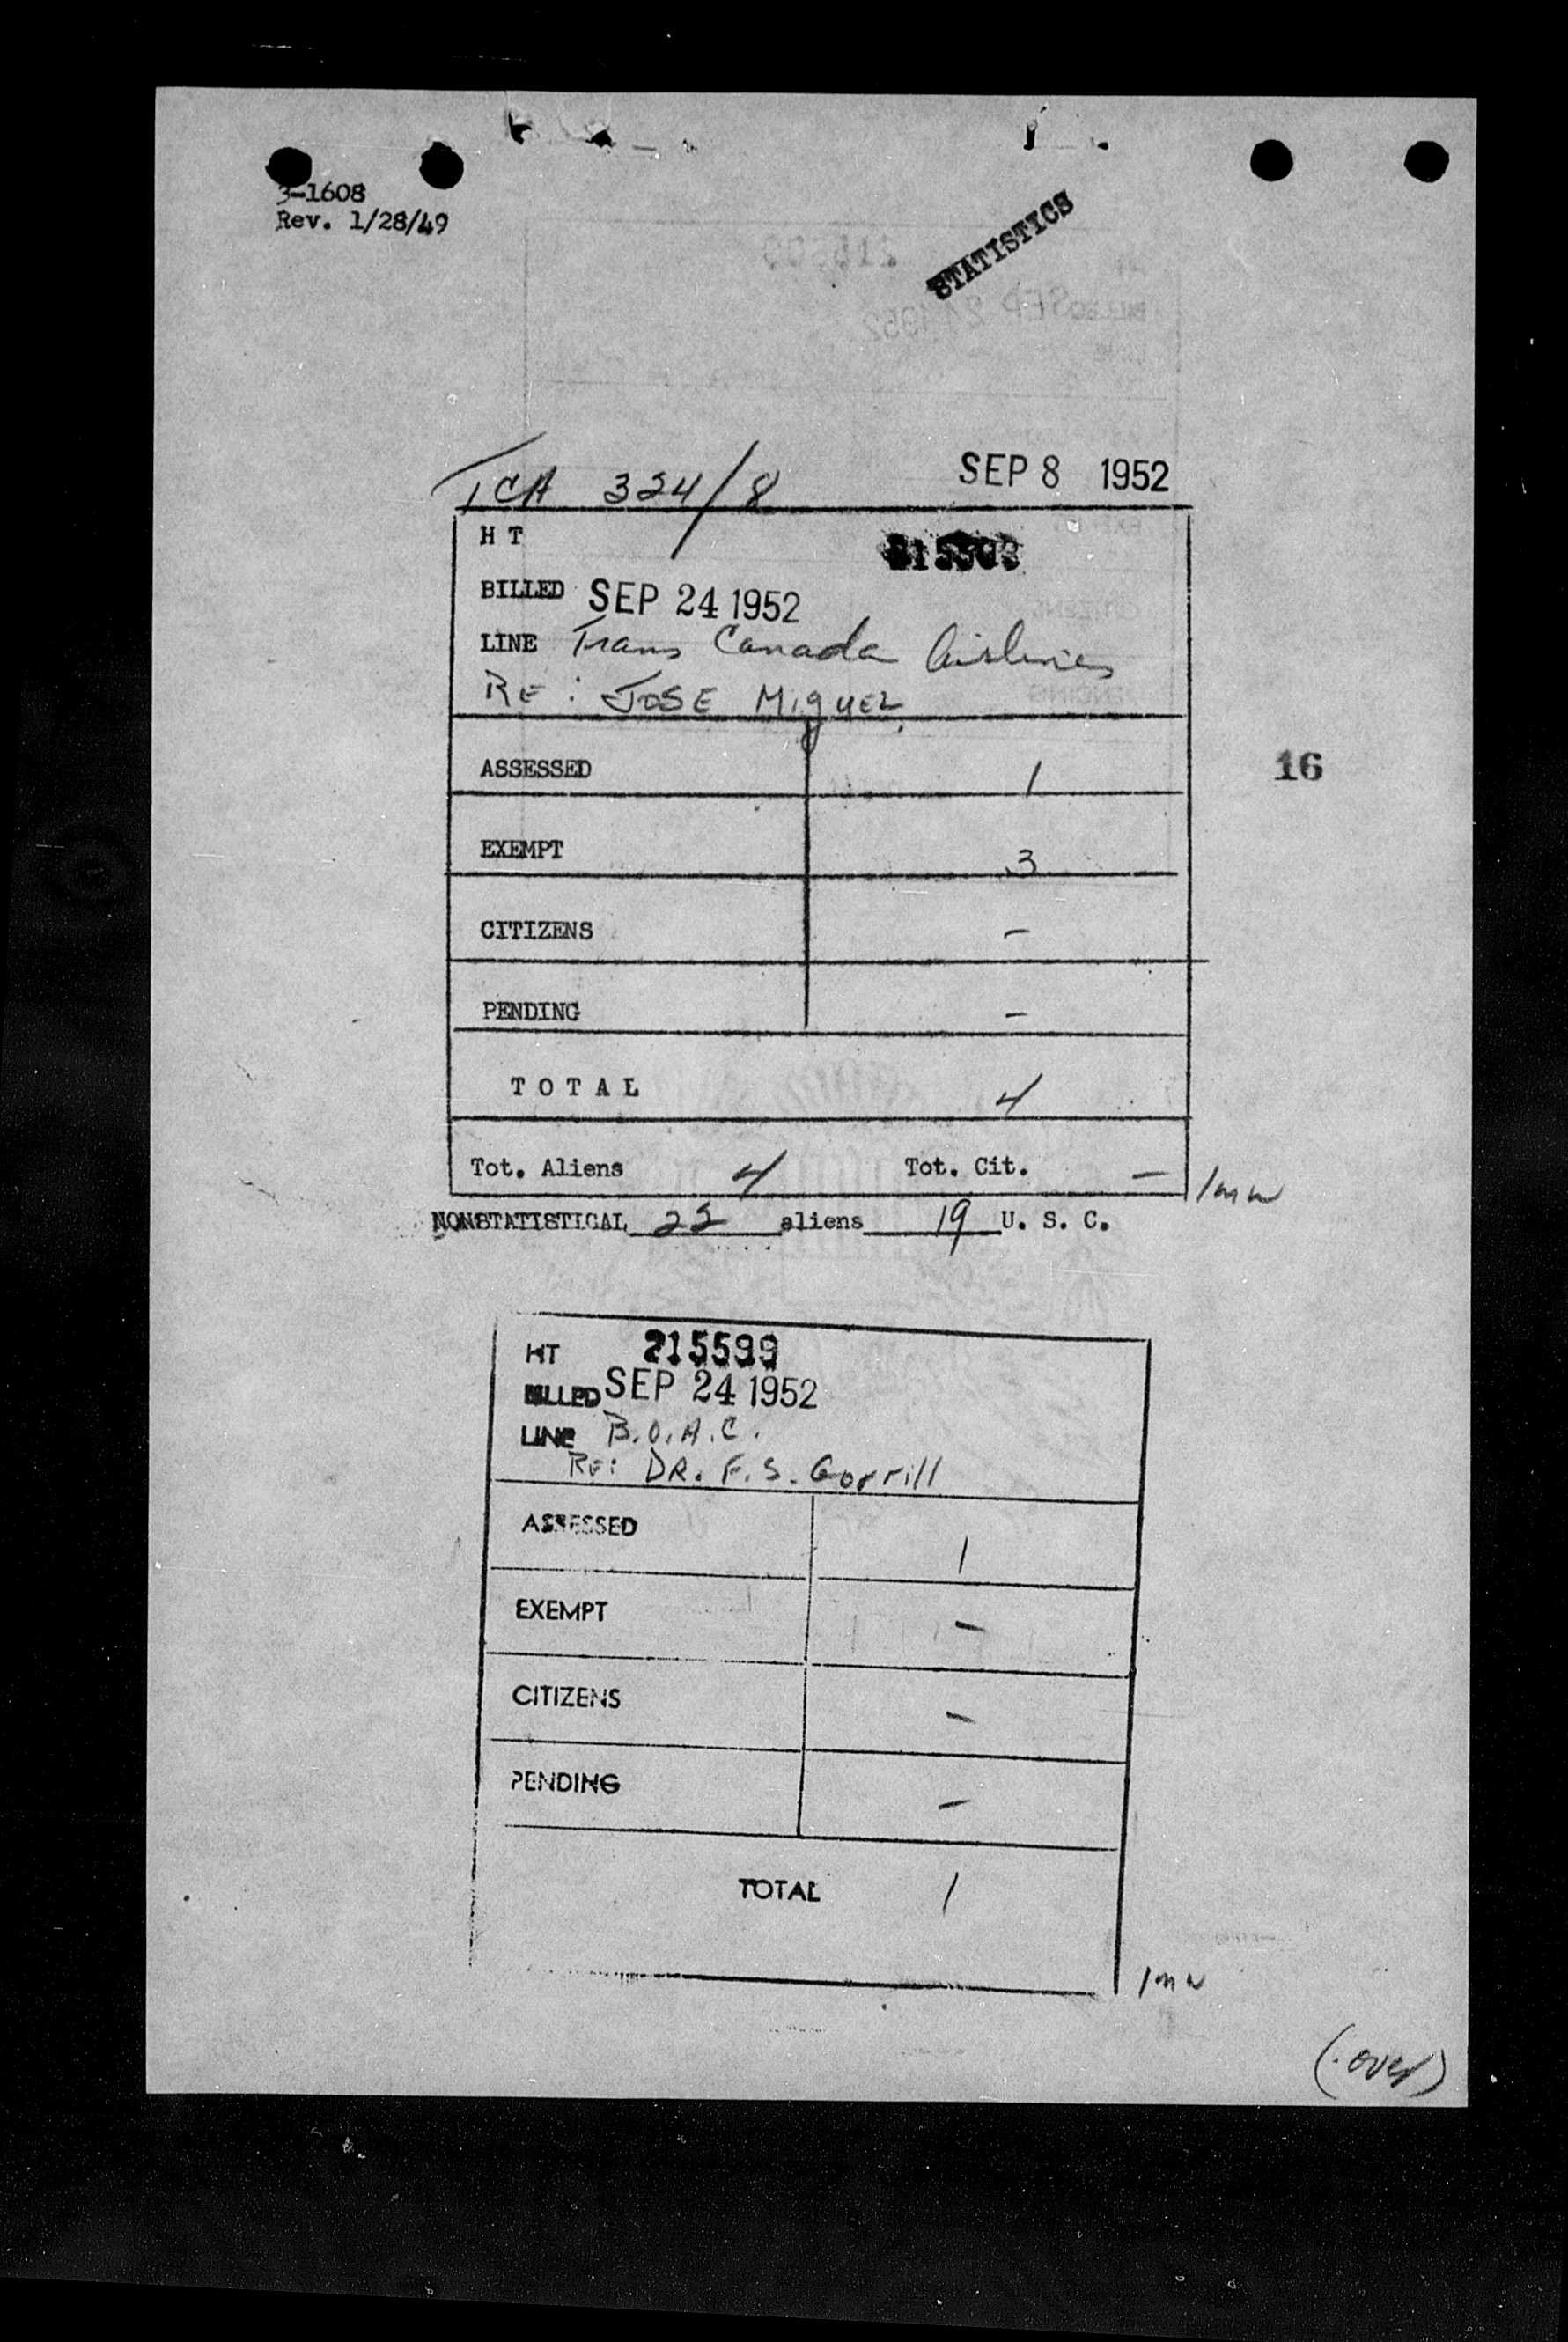 3-1608
Rev. 1/28/49
STATISTICS
TCA 324/8 SEP 8 1952
H T
BILLED SEP 24 1952
LINE Trans Canada Airlines
RE: JOSE MIGUEL
ASSESSED 1
16
EXEMPT 3
CITIZENS -
PENDING -
TOTAL 4
Tot. Aliens 4 Tot. Cit. -
NONSTATISTICAL aliens 19 U. S. C.
HT 215599
BILLED SEP 24 1952
LINE B.O.A.C.
RE: DR. F. S. Gorrill
ASSESSED 1
EXEMPT -
CITIZENS -
PENDING -
TOTAL 1
(over)